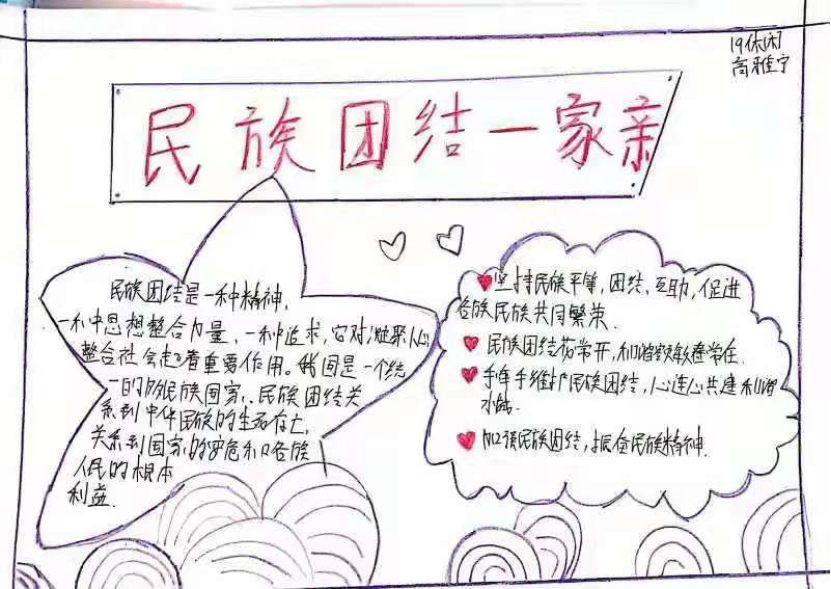 19休闲
高雅宁
民族团结一家亲
民族团结是一种精神,
一种思想整合力量、一种追求,它对凝聚人心
整合社会起着重要作用。我国是一个统
一的多民族国家,民族团结关
系到中华民族的生死存亡,
关系到国家的安危和各族
人民的根本
利益.
坚持民族平等,团结、互助,促进
各族民族共同繁荣.
民族团结花常开,和谐致敏春常在.
手牵手维护民族团结,心连心共建和谐
加强民族团结,振奋民族精神.